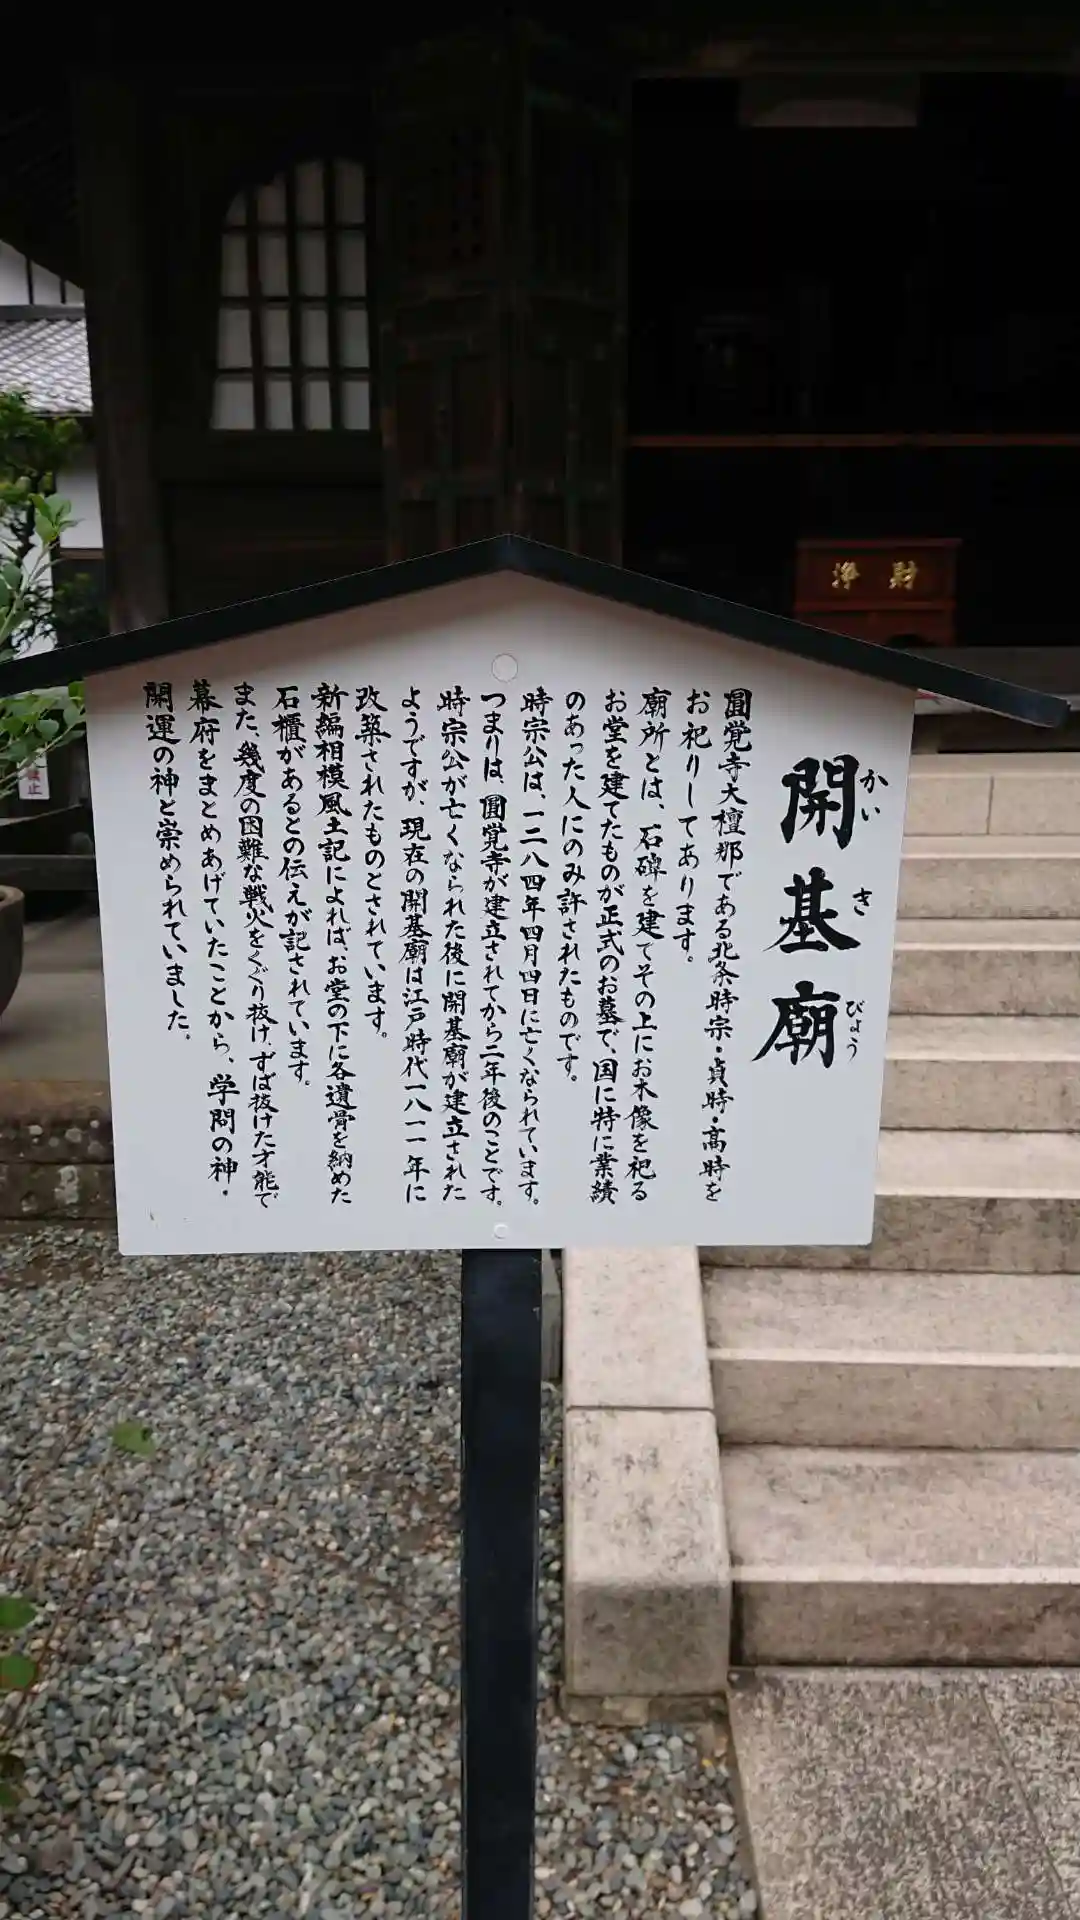 開基廟
かいきびょう
圓覚寺大檀那である北条時宗・貞時・高時を
お祀りしてあります。
廟所とは、石碑を建てその上にお木像を祀る
お堂を建てたものが正式のお墓で、国に特に業績
のあった人にのみ許されたものです。
時宗公は、一二八四年四月四日に亡くなられています。
つまりは、圓覚寺が建立されてから二年後のことです。
時宗公が亡くなられた後に開基廟が建立された
ようですが、現在の開基廟は江戸時代一八一一年に
改築されたものとされています。
新編相模風土記によれば、お堂の下に各遺骨を納めた
石櫃があるとの伝えが記されています。
また、幾度の困難な戦火をくぐり抜け、ずば抜けた才能で
幕府をまとめあげていたことから、学問の神・
開運の神と崇められていました。
浄財
止